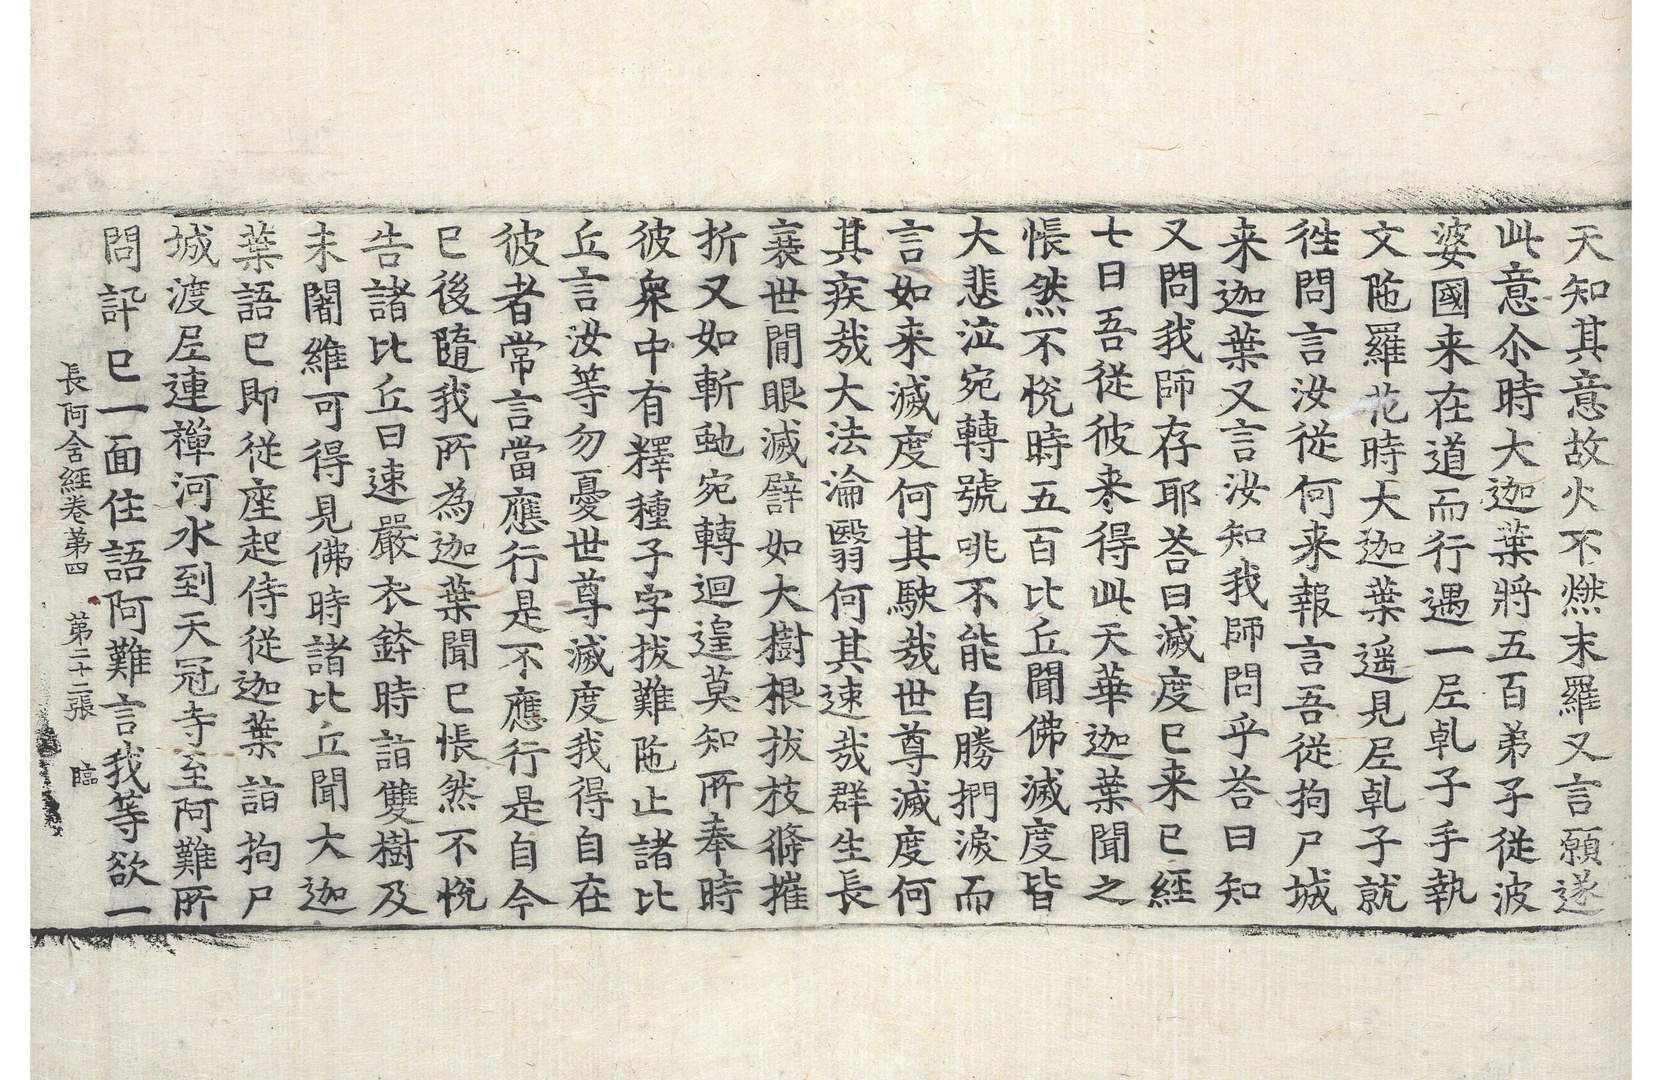 天知其意故火不燃末羅又言願遂
此意尒時大迦葉將五百弟子從波
婆國来在道而行遇一尼乹子手執
文陁羅花時大迦葉遥見尼乹子就
徃問言汝從何来報言吾従拘尸城
来迦葉又言汝知我師問乎荅曰知
又問我師存耶荅曰滅度已来已經
七日吾從彼来得此天華迦葉聞之
悵然不悅時五百比丘聞佛滅度皆
大悲泣宛轉號咷不能自勝捫淚而
言如来滅度何其駛哉世尊滅度何
其疾哉大法淪翳何其速哉群生長
衰世閒眼滅譬如大樹根拔枝條摧
折又如斬虵宛轉迴遑莫知所奉時
彼衆中有釋種子字拔難陁止諸比
丘言汝等勿憂世尊滅度我得自在
彼者常言當應行是不應行是自今
已後隨我所為迦葉聞已悵然不悅
告諸比丘曰速嚴衣鉢時詣雙樹及
未闍維可得見佛時諸比丘聞大迦
葉語已即從座起侍從迦葉詣拘尸
城渡尼連禪河水到天冠寺至阿難所
問訊已一面住語阿難言我等欲一
長阿含經卷第四　第二十二張　臨